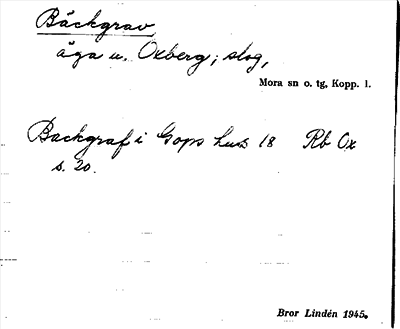 Bäckgrav
äga u. Oxberg; slog,
Mora sn o. tg, Kopp. l.
Backgraf i Gops hus 18 Rb Ox
s. 20.
Bror Lindén 1945.